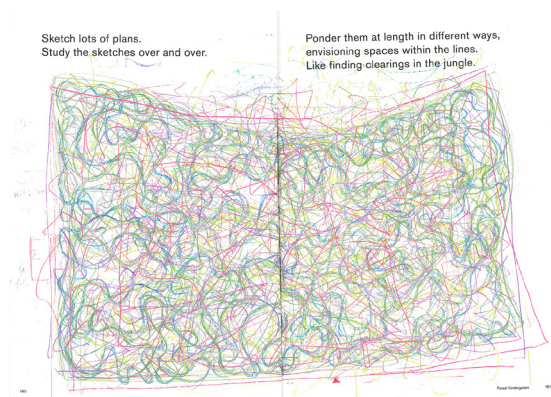 Sketch lots of plans.
Study the sketches over and over.
Ponder them at length in different ways,
envisioning spaces within the lines.
Like finding clearings in the jungle.
160
Forest Kindergarten
161